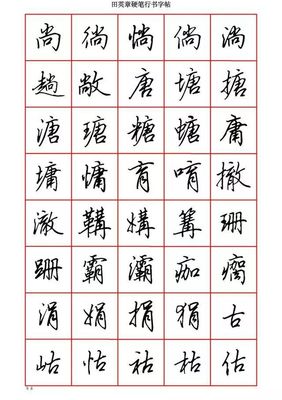 田英章硬笔行书字帖
尚 徜 惝 倘 淌
趟 敞 唐 塘 搪
溏 瑭 糖 螗 庸
墉 慵 育 唷 撤
澈 鞲 媾 篝 珊
跚 霸 灞 痂 瘸
涓 娟 捐 狷 古
岵 怙 祜 枯 估